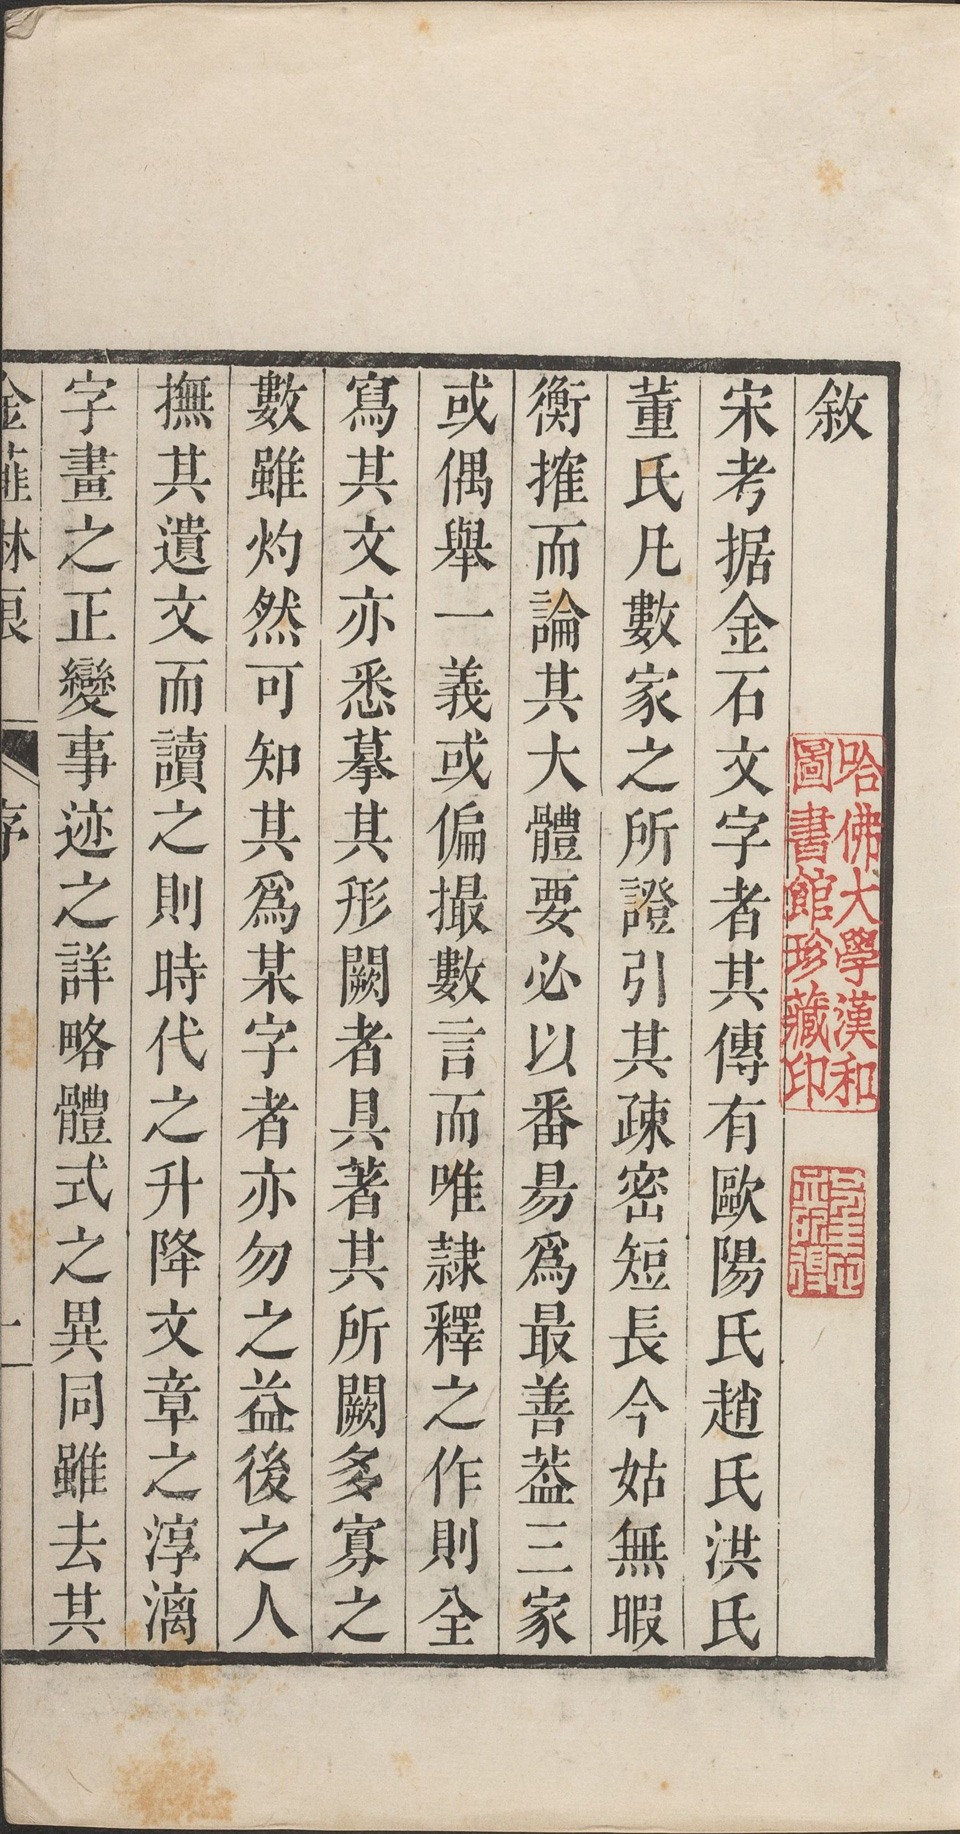 敘
宋考据金石文字者其傳有歐陽氏趙氏洪氏
董氏凡數家之所證引其疎密短長今姑無暇
衡搉而論其大體要必以番昜爲最善葢三家
或偶舉一義或偏撮數言而唯隷釋之作則全
寫其文亦悉摹其形闕者具著其所闕多寡之
數雖灼然可知其爲某字者亦勿之益後之人
撫其遺文而讀之則時代之升降文章之淳漓
字畫之正變事迹之詳略體式之異同雖去其
序
哈佛大學漢和
圖書館珍藏印